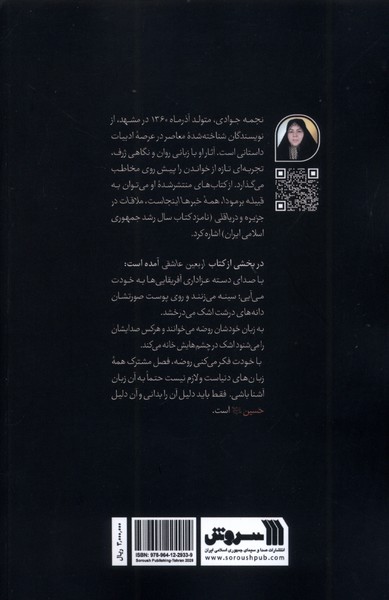 نجمه جوادی، متولد آذرماه ۱۳۶۰ در مشهد، از
نویسندگان شناخته‌شدهٔ معاصر در عرصهٔ ادبیات
داستانی است. آثار او با زبانی روان و نگاهی ژرف،
تجربه‌ای تازه از خواندن را پیش روی مخاطب
می‌گذارد. از کتاب‌های منتشرشدهٔ او می‌توان به
قبیله برمودا، همهٔ خبرها اینجاست، ملاقات در
جزیره و دریاقلی (نامزد کتاب سال رشد جمهوری
اسلامی ایران) اشاره کرد.
در بخشی از کتاب اربعین عاشقی آمده است:
با صدای دسته عزاداری آفریقایی‌ها به خودت
می‌آیی؛ سینه می‌زنند و روی پوست صورتشان
دانه‌های درشت اشک می‌درخشد.
به زبان خودشان روضه می‌خوانند و هرکس صدایشان
را می‌شنود اشک در چشم‌هایش خانه می‌کند.
با خودت فکر می‌کنی روضه، فصل مشترک همهٔ
زبان‌های دنیاست و لازم نیست حتماً به آن زبان
آشنا باشی. فقط باید دلیل آن را بدانی و آن دلیل
حسین است.
۳,۰۰۰,۰۰۰ ریال
ISBN: 978-964-12-2933-9
Soroush Publishing-Tehran 2025
سروش
انتشارات صدا و سیمای جمهوری اسلامی ایران
www.soroushpub.com